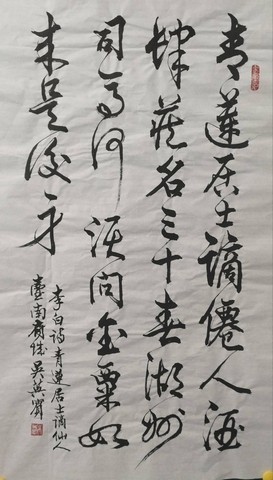 青蓮居士謫僊人酒
肆藏名三十春湖州
司馬何須問金粟如
来是後身
李白詩青蓮居士謫仙人
臺南府城吳英